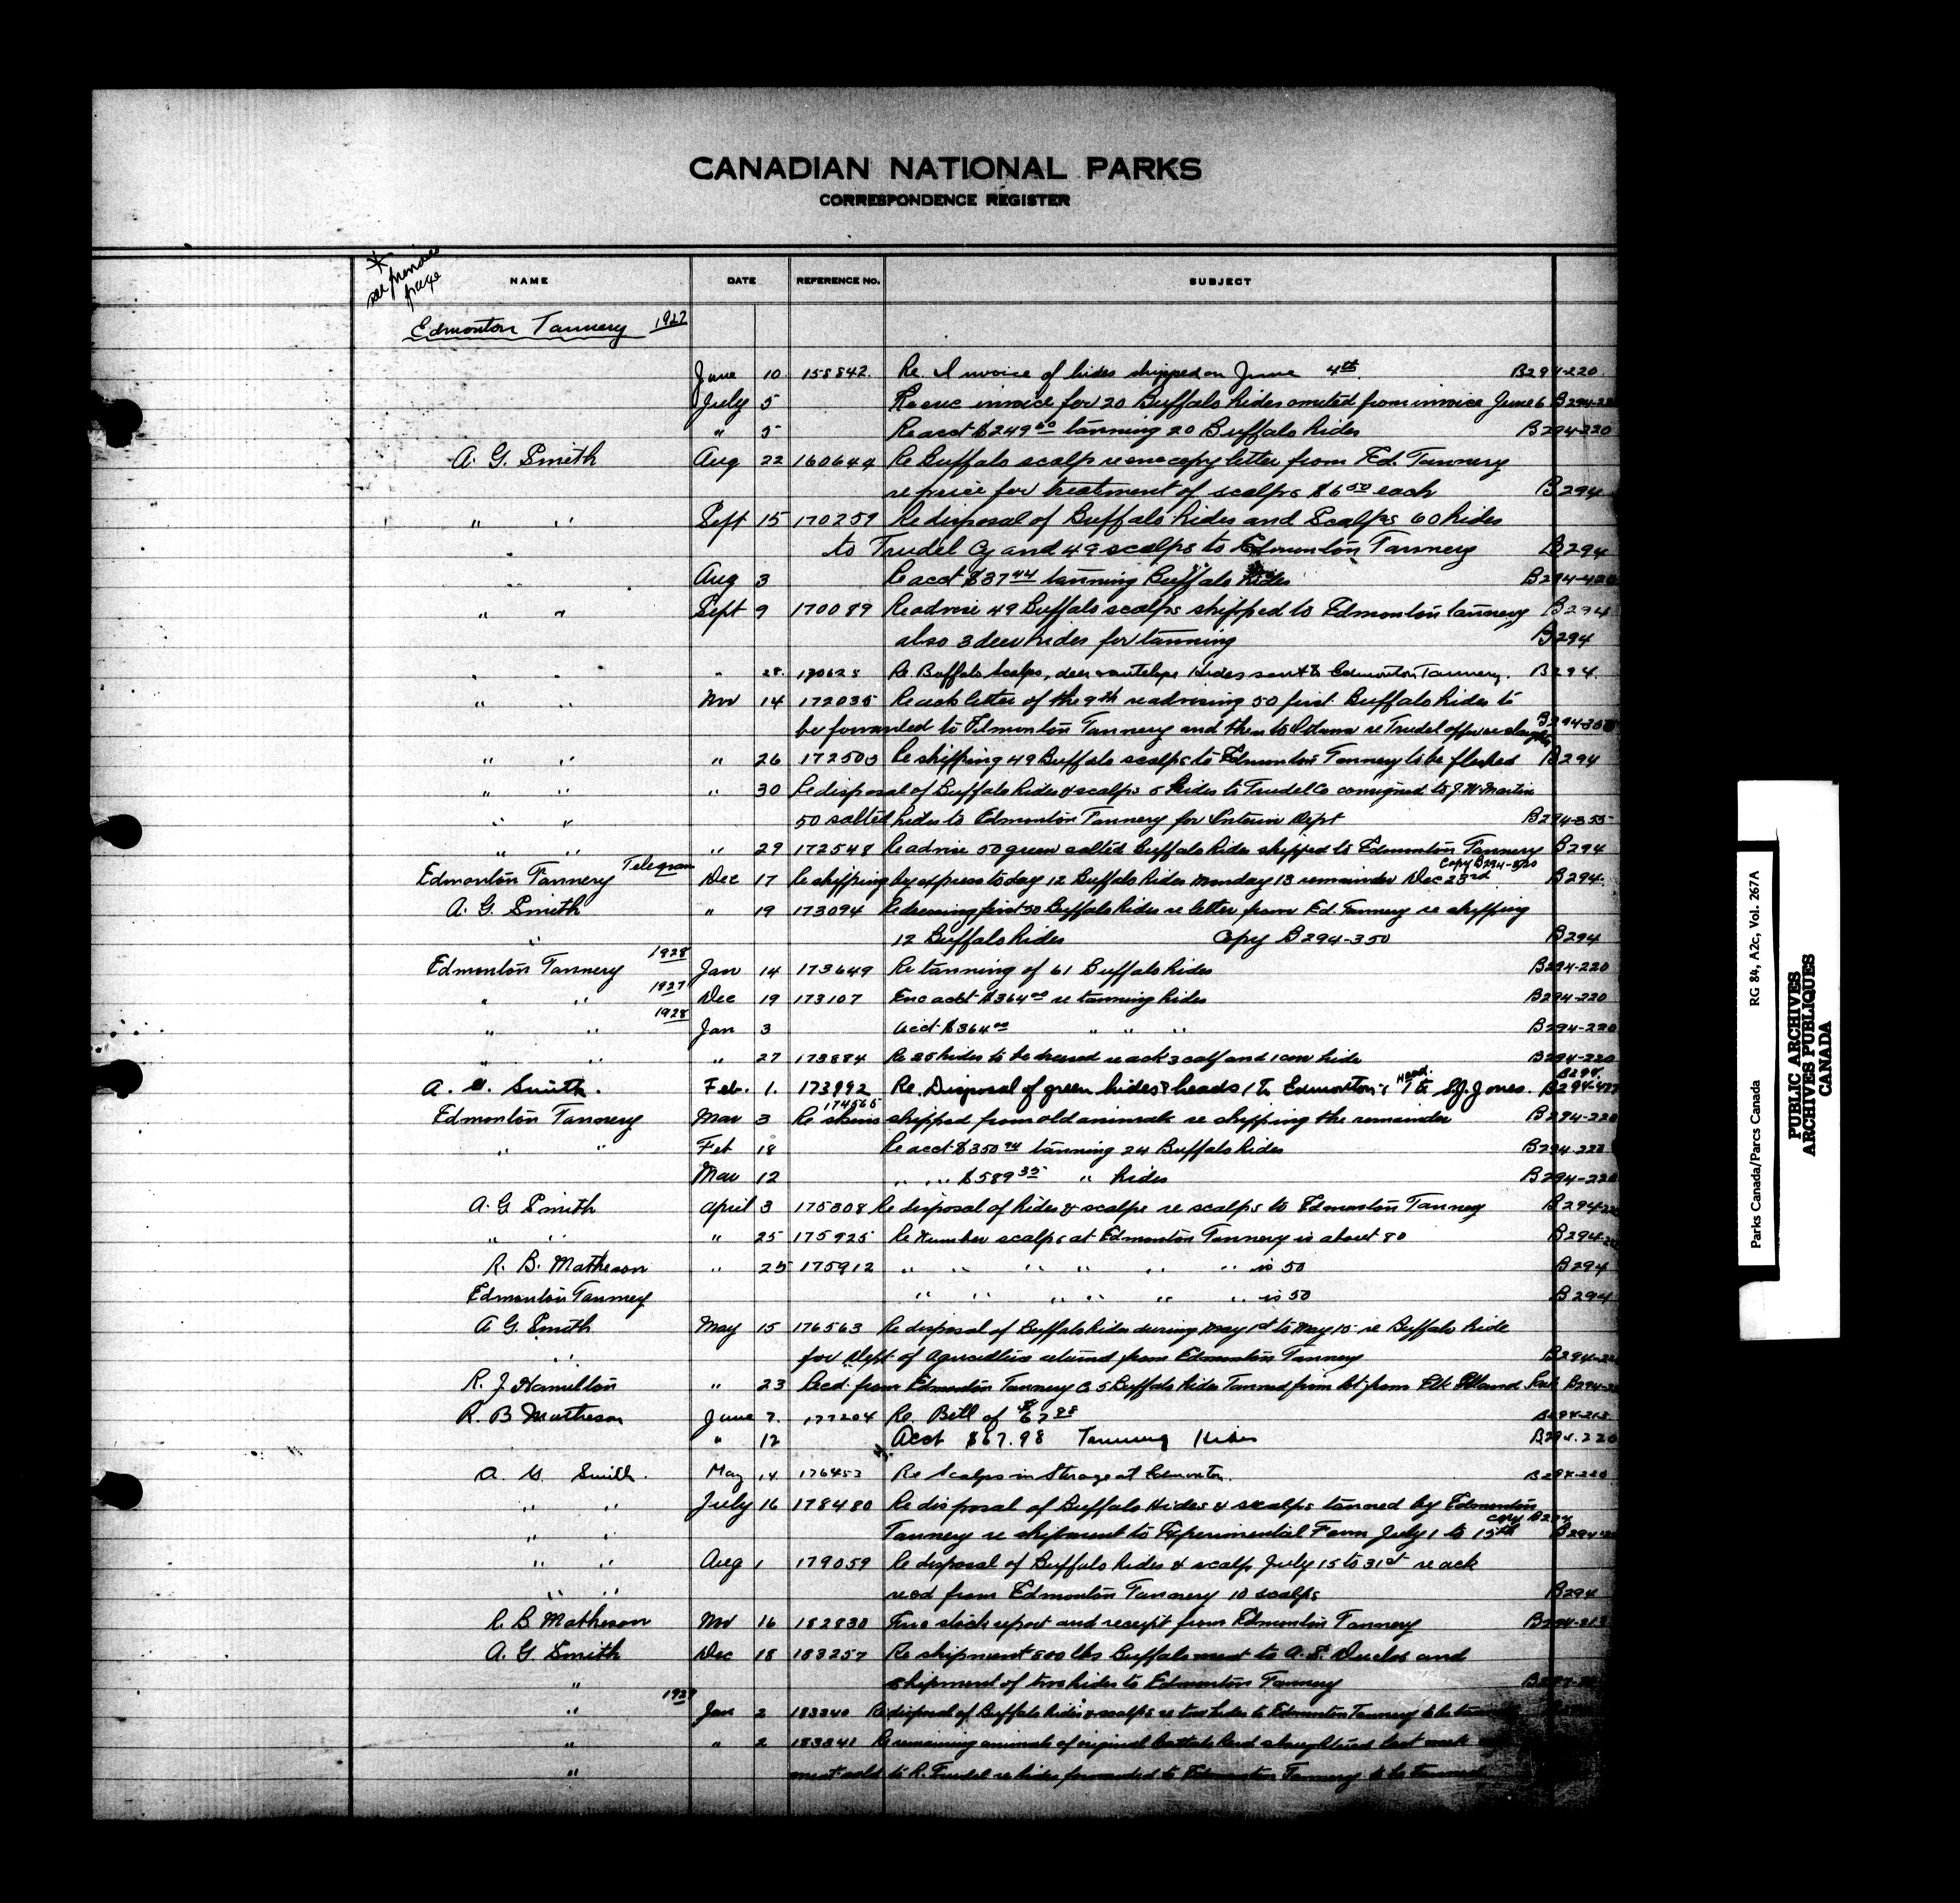 CANADIAN NATIONAL PARKS
CORRESPONDENCE REGISTER
* see previous page
NAME DATE REFERENCE NO. SUBJECT
Edmonton Tannery 1927
June 10 158842. Re. Invoice of hides shipped on June 4th. B294-220
July 5 Re enc invoice for 20 Buffalo hides omitted from invoice June 6 B294-22
" 5 Re acct $249.00 tanning 20 Buffalo hides B294-220
A. G. Smith Aug 22 160644 Re Buffalo scalp re enc copy letter from Ed. Tannery
re price for treatment of scalps $6.50 each B294
" " Sept 15 170259 Re disposal of Buffalo hides and Scalps 60 hides
to Trudel Cy and 49 scalps to Edmonton Tannery B294
Aug 3 Re acct $37.44 tanning Buffalo hides B294-420
" " Sept 9 170089 Re advise 49 Buffalo scalps shipped to Edmonton tannery B294
also 3 deer hides for tanning B294
" " " 28. 170628 Re. Buffalo Scalps, deer & antelope Hides sent to Edmonton Tannery. B294.
" " Nov 14 172035 Re ack letter of the 9th re advising 50 first Buffalo hides to
be forwarded to Edmonton Tannery and then to Ottawa re Trudel offer re B294-35
" " " 26 172500 Re shipping 49 Buffalo scalps to Edmonton Tannery to be fleshed B294
" " " 30 Re disposal of Buffalo hides & scalps 5 hides to Trudel Co consigned to J.W. Martin
" " 50 salted hides to Edmonton Tannery for Interior Dept B294-355
" " " 29 172548 Re advise 50 green salted Buffalo hides shipped to Edmonton Tannery B294
Edmonton Tannery Telegram Dec 17 Re shipping by express today 12 Buffalo hides Monday 13 remainder Dec 23rd Copy B294-350 B294.
A. G. Smith " 19 173094 Re dressing first 50 Buffalo hides re letter from Ed. Tannery re shipping
" 12 Buffalo hides Copy B294-350 B294
Edmonton Tannery 1928 Jan 14 173649 Re tanning of 61 Buffalo hides B294-220
" " 1927 Dec 19 173107 Enc acct $364.00 re tanning hides B294-220
" " 1928 Jan 3 Acct $364.00 " " " B294-220
" " " 27 173884 Re 25 hides to be dressed re ack 3 calf and 1 cow hide B294-220
A. G. Smith. Feb. 1. 173992 Re. Disposal of green hides & heads 1 to Edmonton & 1 Head to S.J. Jones. B294. B294-427
Edmonton Tannery Mar 3 174565 Re skins shipped from old animals re shipping the remainder B294-220
" " Feb 18 Re acct $350.94 tanning 24 Buffalo hides B294-220
Mar 12 " " $589.35 " hides B294-220
A. G Smith April 3 175308 Re disposal of hides & scalps re scalps to Edmonton Tannery B294-22
" " " 25 175925 Re Number scalps at Edmonton Tannery is about 80 B294-22
R. B. Matheson " 25 175912 " " " " " " is 50 B294
Edmonton Tannery " " " " " " is 50 B294
A G. Smith May 15 176563 Re disposal of Buffalo hides during May 1st to May 15 re Buffalo hide
" for Dept of Agriculture returned from Edmonton Tannery B294-22
R. J. Hamilton " 23 Recd. from Edmonton Tannery Co 5 Buffalo hides Tanned from lot from Elk Island Park B294-2
R. B Matheson June 7. 177204 Re. Bill of $67.98 B294-213
" 12 Acct $67.98 Tanning Hides B294.220
A. G. Smith. May 14 176453 Re Scalps in Storage at Edmonton. B294-220
" " July 16 178480 Re disposal of Buffalo Hides & scalps tanned by Edmonton
" " Tannery re shipment to Experimental Farm July 1 to 15th Copy B294 B294-22
" " Aug 1 179059 Re disposal of Buffalo hides & scalps July 15 to 31st re ack
" " recd from Edmonton Tannery 10 scalps B294
R. B. Matheson Nov 16 182830 Enc stock report and receipt from Edmonton Tannery B294-213
A. G. Smith Dec 18 183257 Re shipment 800 lbs Buffalo meat to A. S. Duclos and
" shipment of two hides to Edmonton Tannery
" 1929 Jan 2 183340 Re disposal of Buffalo hides & scalps re two hides to Edmonton Tannery to be
" " 2 183341 Re remaining animals of original Cattalo herd slaughtered last week
" meat sold to R. Trudel re hides forwarded to Edmonton Tannery to be tanned
Parks Canada/Parcs Canada RG 84, A2c, Vol. 267A
PUBLIC ARCHIVES
ARCHIVES PUBLIQUES
CANADA